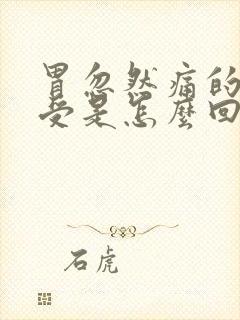 胃忽然痛的
受是怎麼回
石虎